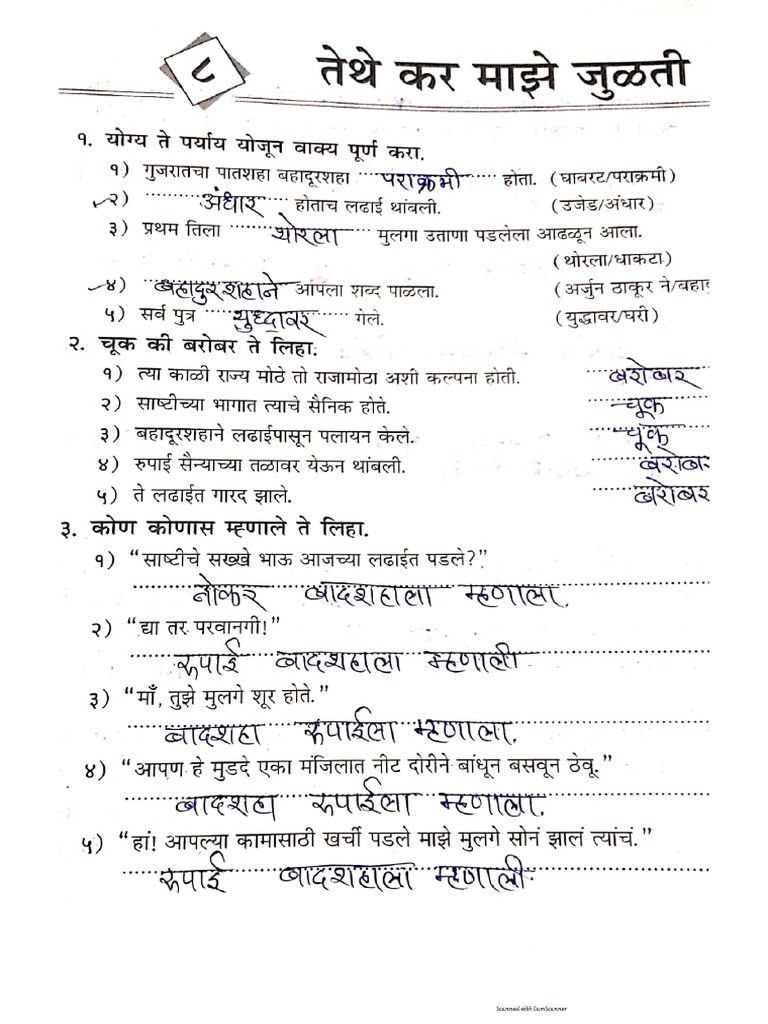 ८ तेथे कर माझे जुळती
१. योग्य ते पर्याय योजून वाक्य पूर्ण करा.
१) गुजरातचा पातशहा बहादूरशहा पराक्रमी होता. (घाबरट/पराक्रमी)
२) अंधार होताच लढाई थांबली. (उजेड/अंधार)
३) प्रथम तिला थोरला मुलगा उताणा पडलेला आढळून आला.
(थोरला/धाकटा)
४) बहादुरशहाने आपला शब्द पाळला. (अर्जुन ठाकूर ने/बहा
५) सर्व पुत्र युध्दावर गेले. (युद्धावर/घरी)
२. चूक की बरोबर ते लिहा.
१) त्या काळी राज्य मोठे तो राजामोठा अशी कल्पना होती. बरोबर
२) साष्टीच्या भागात त्याचे सैनिक होते. चूक
३) बहादूरशहाने लढाईपासून पलायन केले. चूक
४) रुपाई सैन्याच्या तळावर येऊन थांबली. बरोबर
५) ते लढाईत गारद झाले. बरोबर
३. कोण कोणास म्हणाले ते लिहा.
१) “साष्टीचे सख्खे भाऊ आजच्या लढाईत पडले?”
नोकर बादशहाला म्हणाला.
२) “द्या तर परवानगी!”
रुपाई बादशहाला म्हणाली
३) “माँ, तुझे मुलगे शूर होते.”
बादशहा रुपाईला म्हणाला.
४) “आपण हे मुडदे एका मंजिलात नीट दोरीने बांधून बसवून ठेवू.”
बादशहा रुपाईला म्हणाला.
५) “हां! आपल्या कामासाठी खर्ची पडले माझे मुलगे सोनं झालं त्यांचं.”
रुपाई बादशहाला म्हणाली.
Scanned with CamScanner